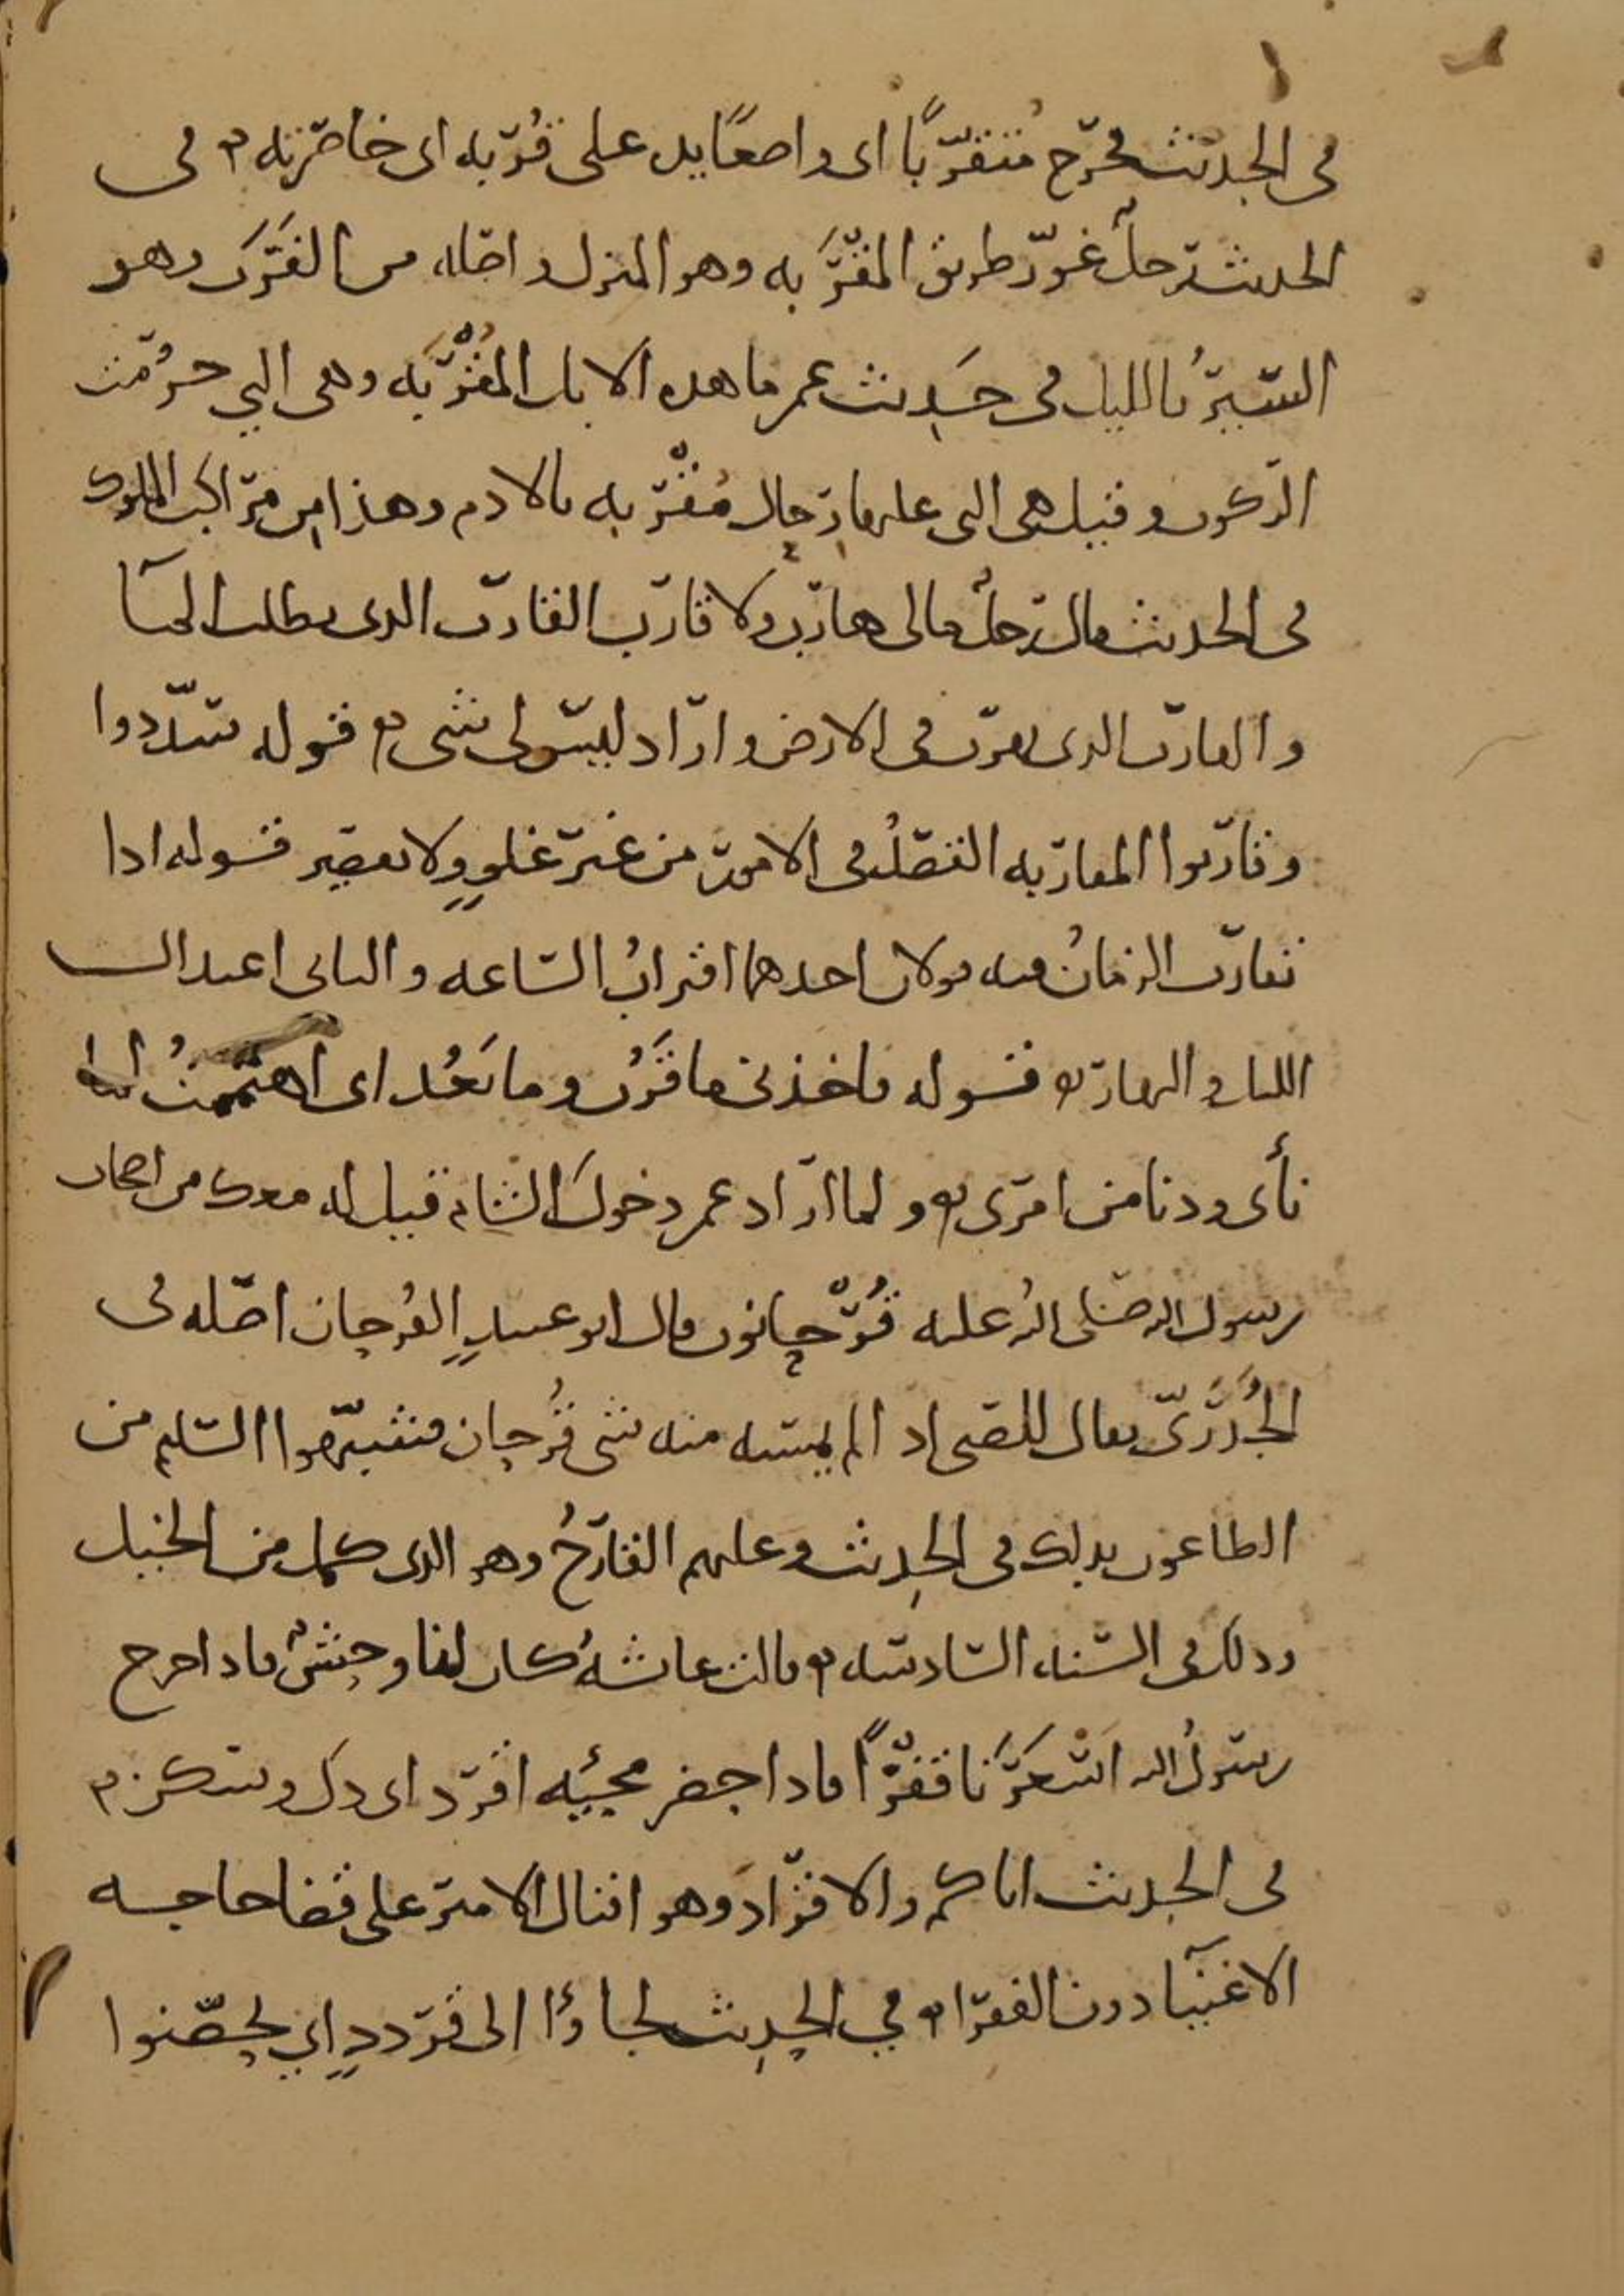 في الحديث فخرج متقرّبًا اى واضعًا يده على قُرْبه اى خاصرته في
الحديث رجلٌ غوّر طريق المَقْرَبه وهو المنزل واصله من القَرَب وهو
السَّيْرُ بالليل في حَديث عمر ما هذه الابل المُقْرَبَه وهى التي حُزمت
للركوب وقيل هى التى عليها رحال مُقْرَبه بالادم وهذا من مراكب الملوك
في الحديث قال رجلٌ مالى هارب ولا قارب القارب الذى يطلب المآ
والهارب الذى يهرب في الارض واراد ليس لى شى قوله سدّدوا
وقاربوا المقاربه القصْدُ في الامور من غير غلوٍ ولا تقصير قوله اذا
تقارب الزمانُ فيه قولان احدهما اقترابُ السّاعه والثانى اعتدال
الليل والنهار قوله فاخذنى ما قَرُب وما بَعُد اى اهتممتُ لما
نأى ودنا من امرى ولما اراد عمر دخولَ الشام قيل له معك من اصحاب
رسول الله صلى الله عليه قُرْحانون قال ابو عبيدٍ القُرحان اصله في
الجُدَرىّ يقال للصبى اذا لم يمسه منه شى قُرحان فشبّهوا السليم من
الطاعون بذلك في الحديث وعليهم القارحُ وهو الذى كمل من الخيل
وذلك في السّنه السّادسه قالت عائشةُ كان لنا وحشٌ فاذا خرج
رسولُ الله اسْعَرَنا قفزًا فاذا حضر مجيئه اقرد اى ذل وسكن
في الحديث اياكم والاقراد وهو اقبال الامير على قضا حاجه
الاغنيا دون الفقرا في الحديث لجاؤا الى قرددٍ اي تحصّنوا